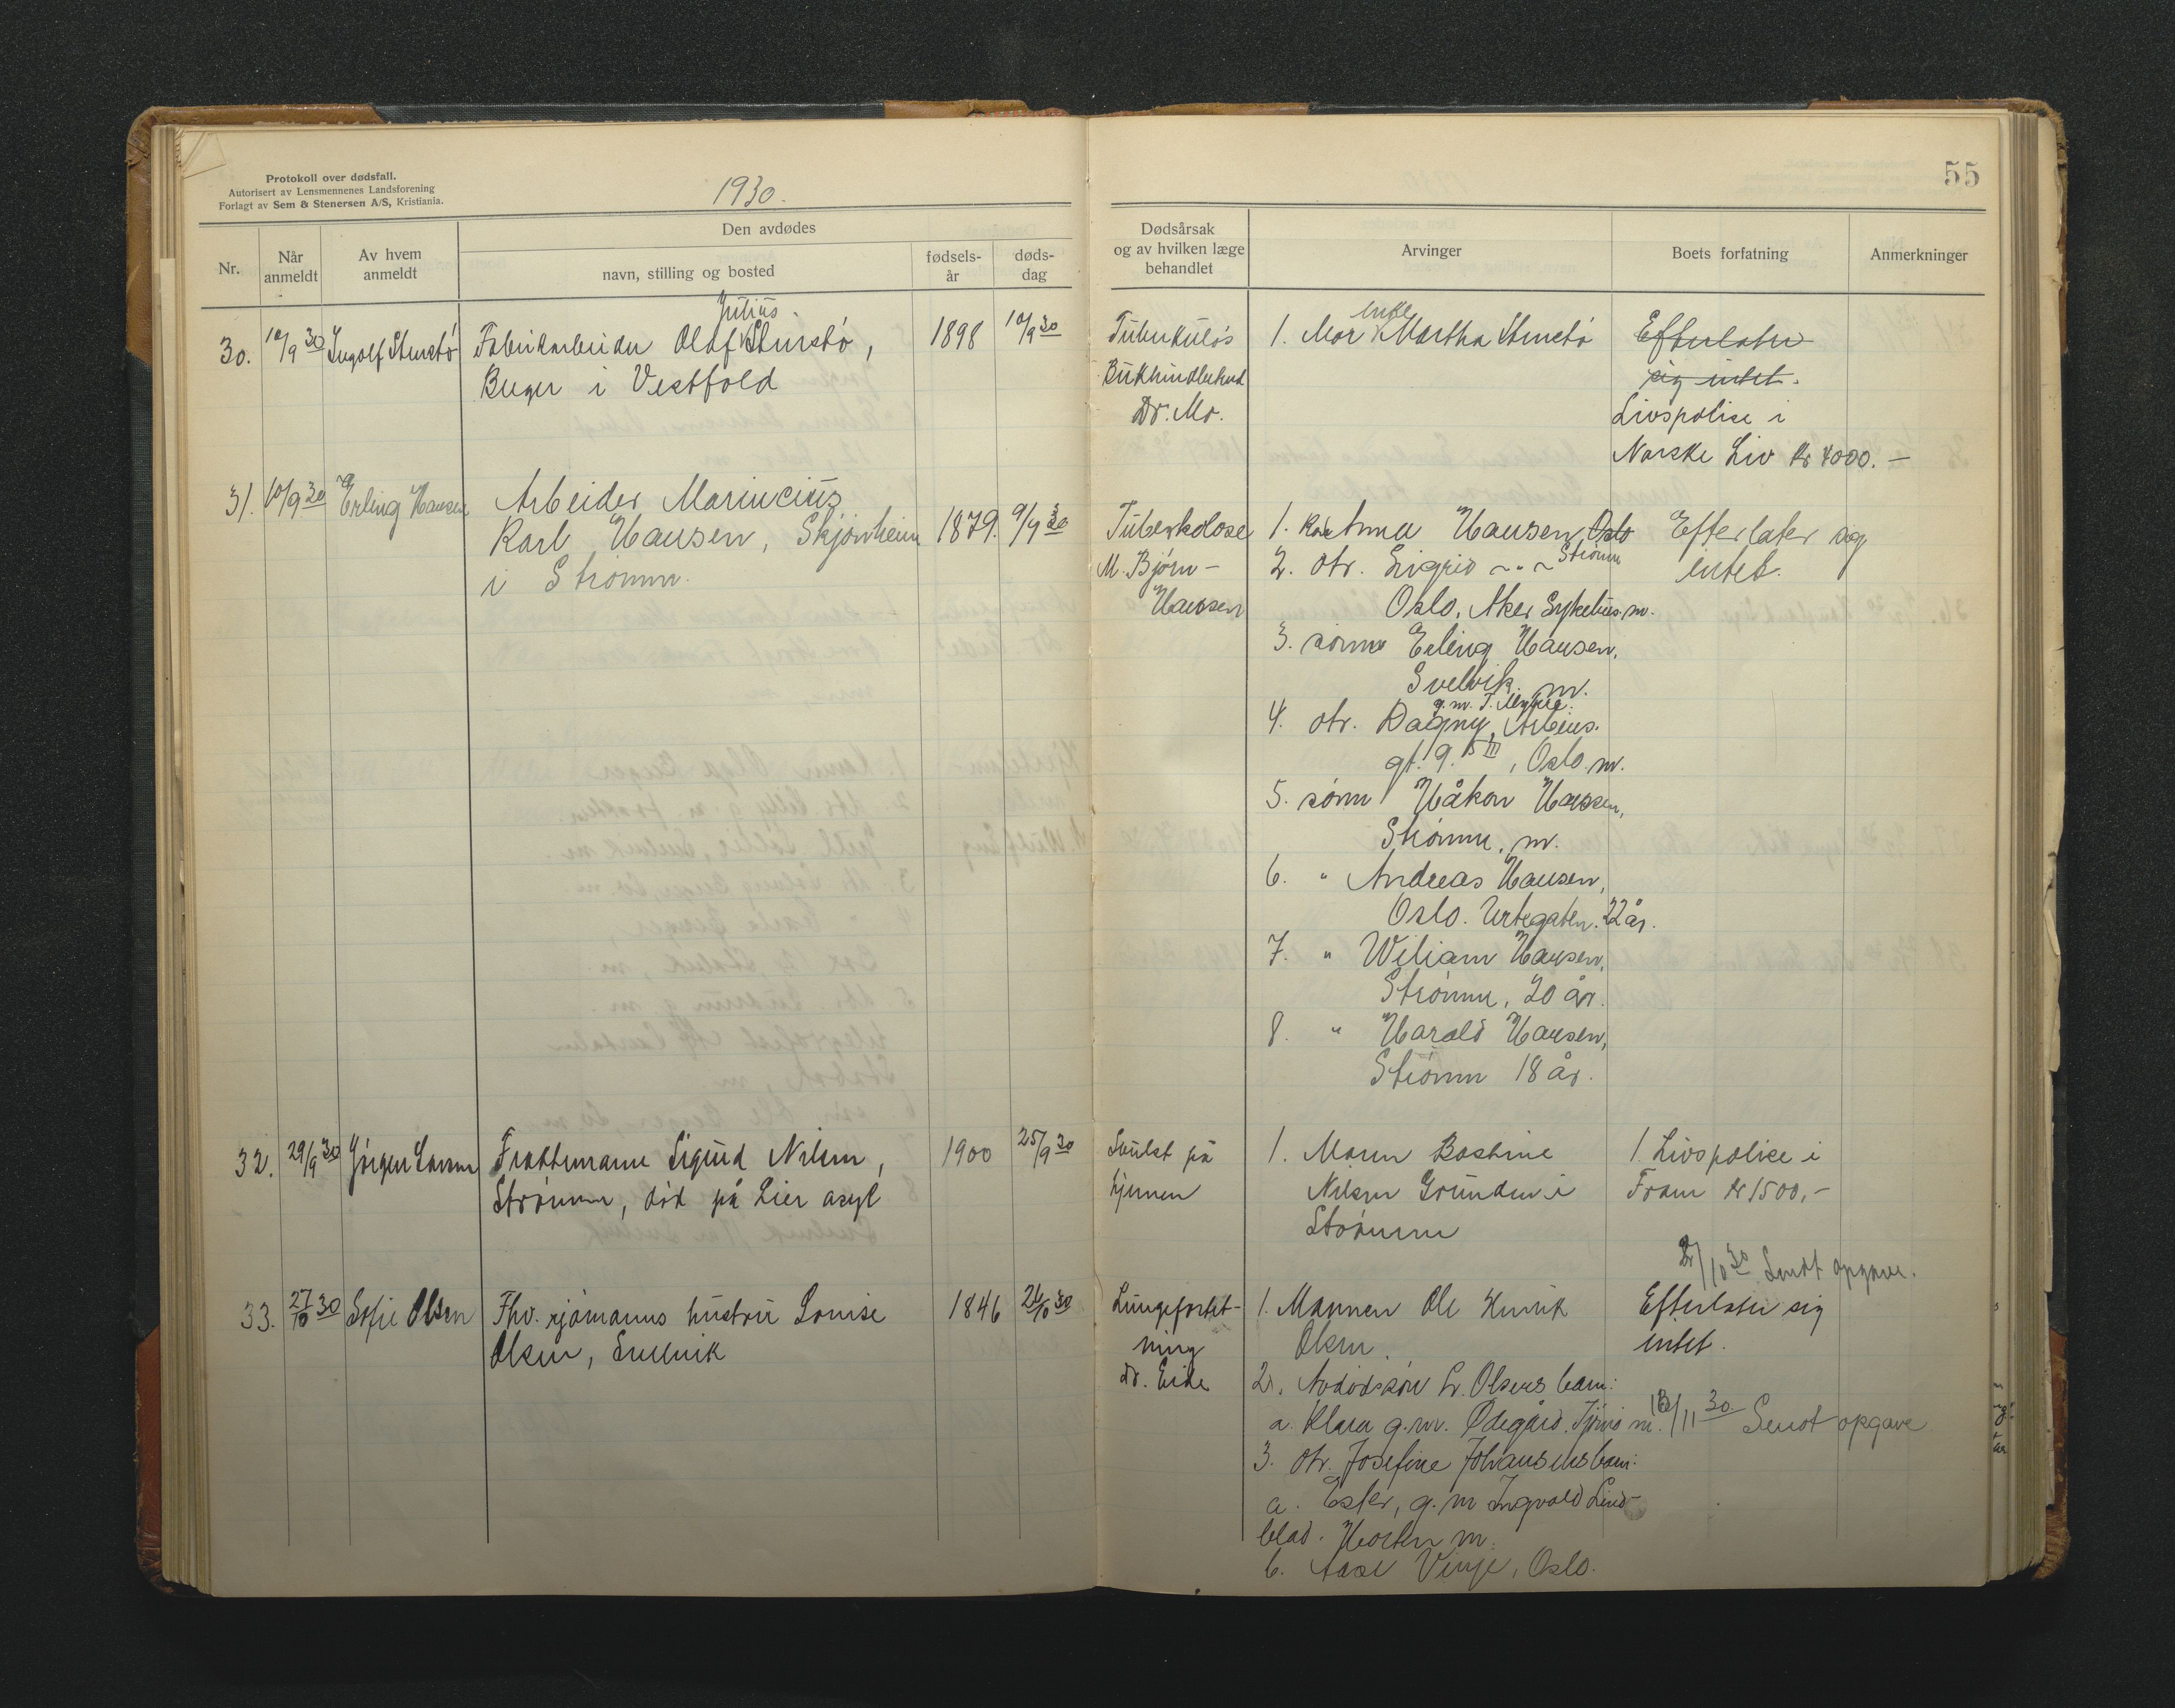 Protokoll over dødsfall.
Autorisert av Lensmennenes Landsforening
Forlagt av Sem & Stenersen A/S, Kristiania.
1930.
55
Nr.
Når anmeldt
Av hvem anmeldt
Den avdødes
navn, stilling og bosted
fødselsår
dødsdag
Dødsårsak
og av hvilken læge
behandlet
Arvinger
Boets forfatning
Anmerkninger
30. 10/9 30 Ingolf
Julius
Fabrikarbeider Olaf
Berger i Vestfold
1898 10/9 30
Tuberkuløs
Dr. Mo.
enke
1. Mor Martha
Efterlater
sig intet.
Livspolise i
Norske Liv kr 4000.-
31. 10/9 30 Erling Hansen
Arbeider Marincius
Karl Hansen, Skjønheim
i Strømm.
1879. 9/9 30
Tuberkolose
M. Bjørn-
Hansen
1. Anna Hansen Oslo
2. dtr. Sigrid ~ " ~ Strømm
Oslo. Aker Sykehus. m.
3. sønn Erling Hansen,
Svelvik. m.
4. dtr. Dagny,
g. m. T.
gt. 9. III, Oslo. m.
5. sønn Håkon Hansen,
Strømm. m.
6. " Andreas Hansen,
Oslo. Urtegaten. 22 år.
7. " Wiliam Hansen,
Strømm, 20 år.
8. " Harald Hansen,
Strømm 18 år.
Efterlater sig
intet.
32. 29/9 30 Jørgen Larsen
Fraktemann Sigurd Nilsen,
Strømm, død på Lier asyl
1900 25/9 30
Svulst på
hjernen
1. Moren Bostine
Nilsen Grunden i
Strømm
1. Livspolise i
Fram kr 1500,-
/10 30 Sendt opgave.
33. 27/10 30 Sofie Olsen
Fhv. sjømanns hustru Lovise
Olsen, Svelvik
1846 26/10 30
Lungefortet-
ning
dr. Eide
1. Mannen Ole Henrik
Olsen.
2. Avdød søn Olsens barn:
a. Klara g. m. Ødegård. Tjømø m.
3. dtr. Josefine Johansens barn:
a. Ester, g. m Ingvald Lind-
blad. Horten m.
b. Aase Vinje, Oslo.
Efterlater sig
intet.
/11 30 Sendt opgave